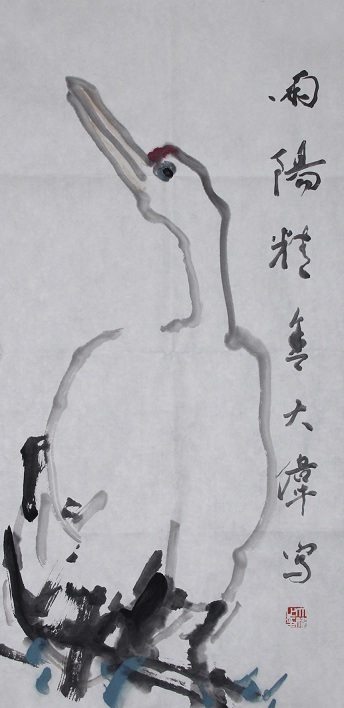 雨陽精舍大偉写